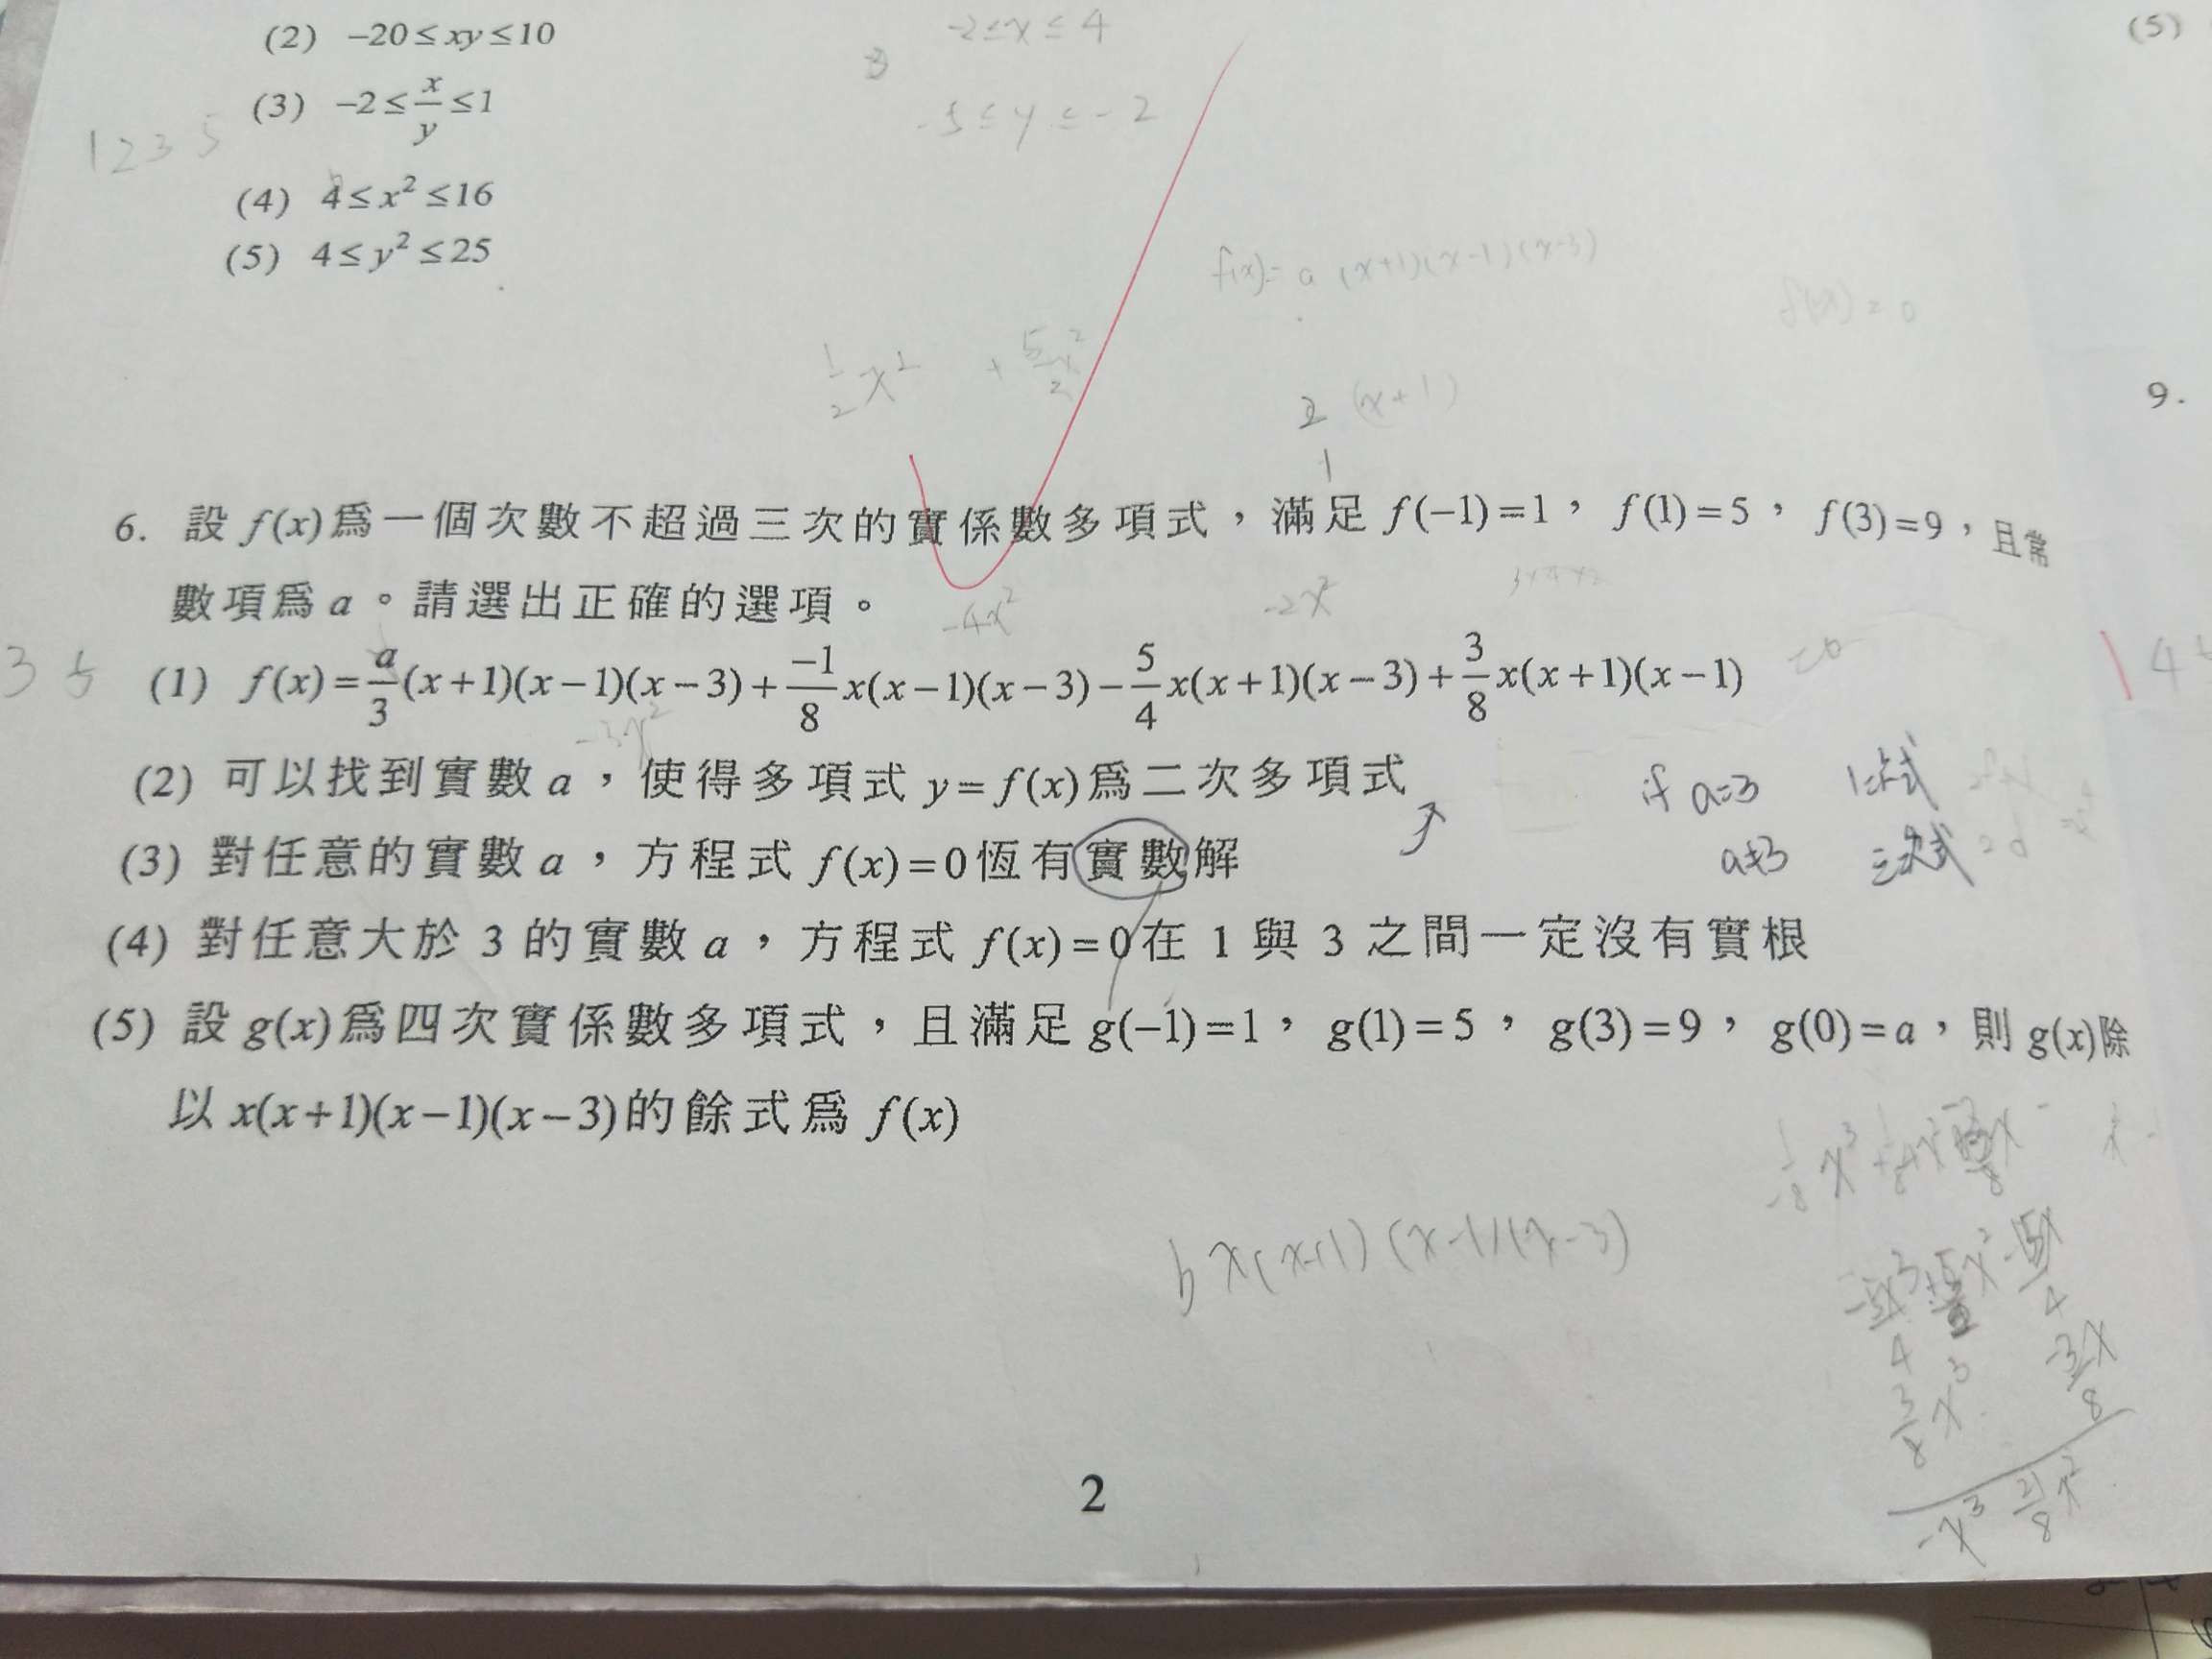 (2) −20≤xy≤10
−2≤x≤4
(5)
(3) −2≤x/y≤1
−5≤y≤−2
1 2 3 5
(4) 4≤x²≤16
(5) 4≤y²≤25
f(x)=a(x+1)(x−1)(x−3)
1/2 x² + 5/2 x²
2 (x+1)
9.
1
6. 設f(x)為一個次數不超過三次的實係數多項式，滿足f(−1)=1，f(1)=5，f(3)=9，且常
數項為a。請選出正確的選項。
−4x² −2x²
3 5
(1) f(x)=a/3(x+1)(x−1)(x−3)+−1/8x(x−1)(x−3)−5/4x(x+1)(x−3)+3/8x(x+1)(x−1)
−3x²
(2) 可以找到實數a，使得多項式y=f(x)為二次多項式
if a=3 1次式
(3) 對任意的實數a，方程式f(x)=0恆有實數解
a≠3 三次式
(4) 對任意大於3的實數a，方程式f(x)=0在1與3之間一定沒有實根
(5) 設g(x)為四次實係數多項式，且滿足g(−1)=1，g(1)=5，g(3)=9，g(0)=a，則g(x)除
以x(x+1)(x−1)(x−3)的餘式為f(x)
b x(x+1)(x−1)(x−3)
3/8 x³
−x³ 21/8 x²
2